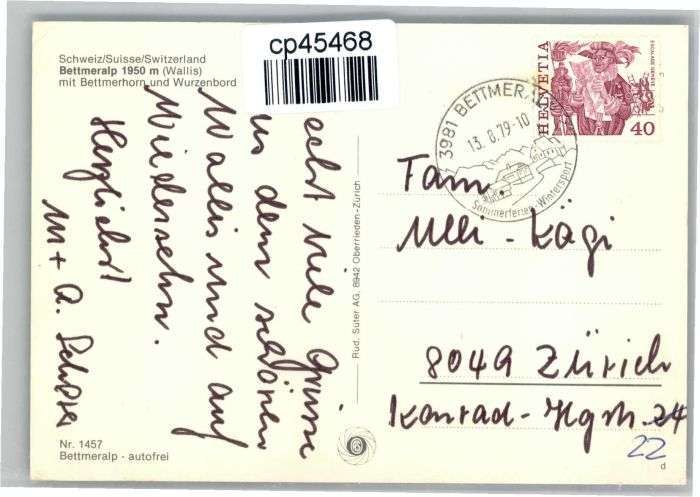 Schweiz/Suisse/Switzerland
Bettmeralp 1950 m (Wallis)
mit Bettmerhorn und Wurzenbord
cp45468
echt viele Grüsse
us dem schönen
Wallis und auf
Wiedersehn.
Herzlichst
M + A.
Nr. 1457
Bettmeralp - autofrei
Rud. Suter AG, 8942 Oberrieden-Zürich
3981 BETTMER
13.8.79-10
Sommerferien - Wintersport
HELVETIA
40
ESCALADE GENÈVE
Fam.
Ulli - Kägi
8049 Zürich
Konrad-Ilgstr. 24
22
d